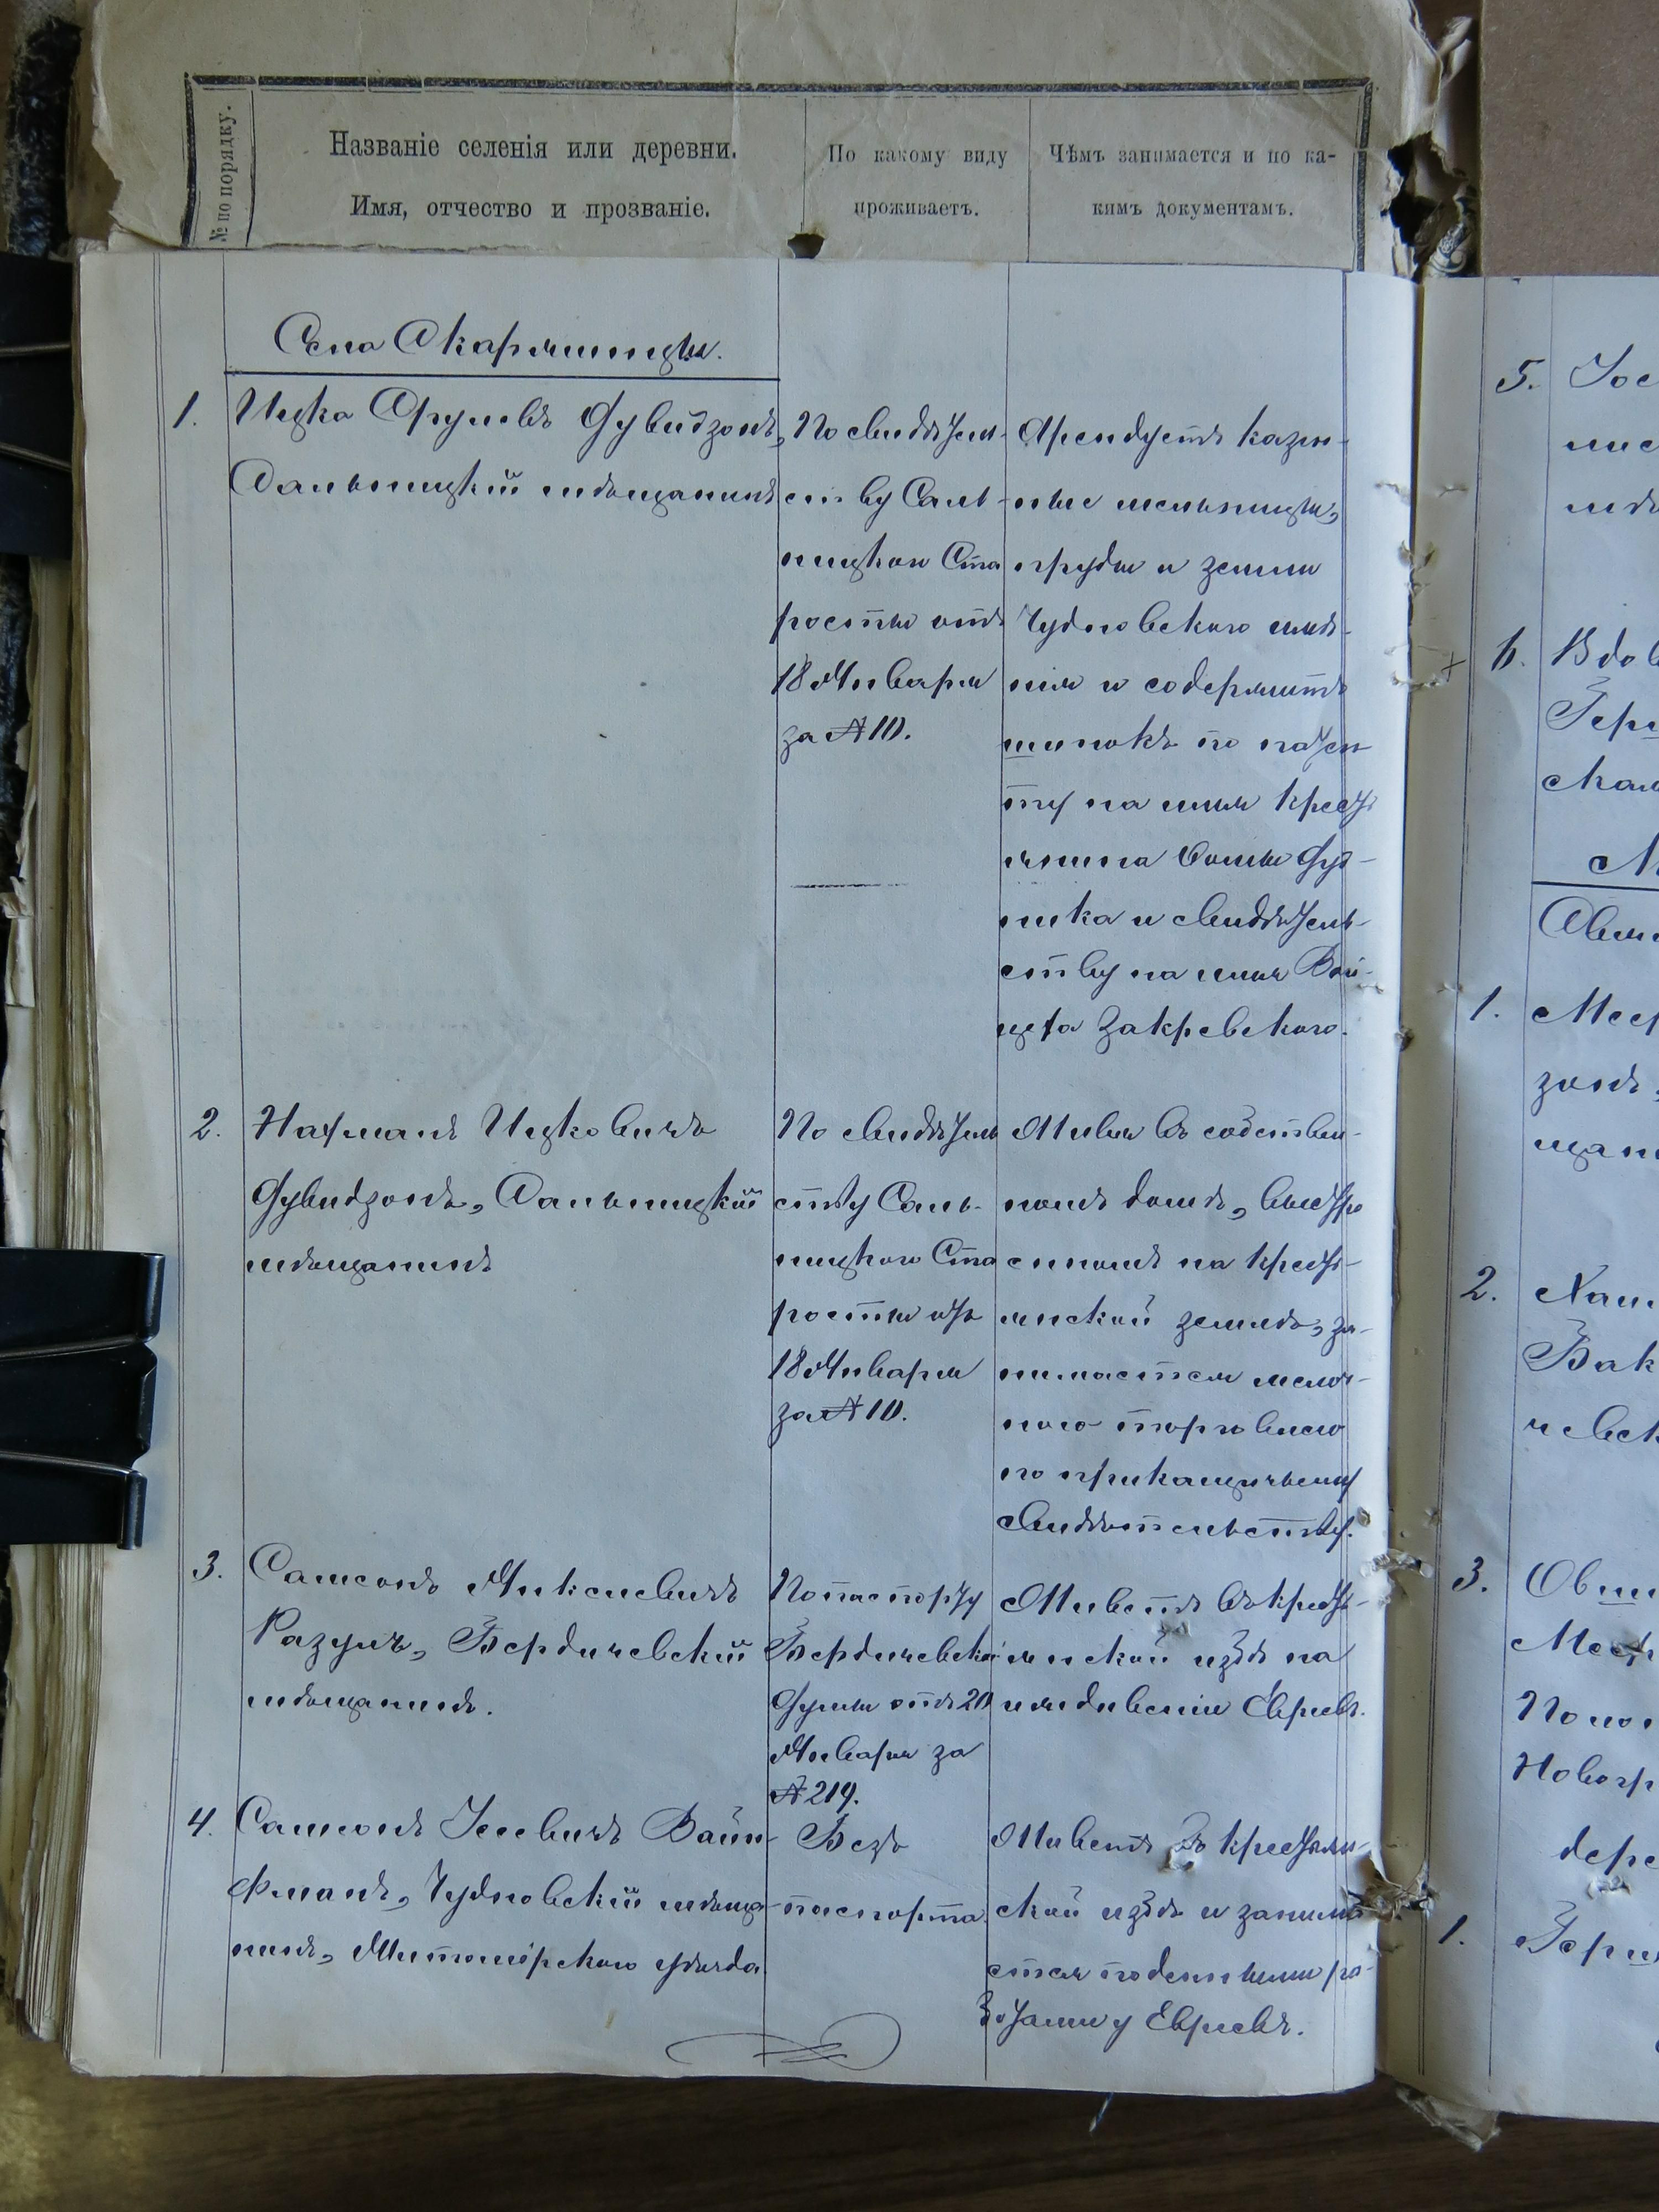 № по порядку.
Названіе селенія или деревни.
Имя, отчество и прозваніе.
По какому виду
проживаетъ.
Чѣмъ занимается и по ка-
кимъ документамъ.
Село
1. Ицко Срулевъ Дувидзонъ,
Сальницкій мѣщанинъ
По свидѣтель-
ству Саль-
ницкой Ста
росты отъ
18 Января
за № 10.
Арендуетъ казен-
ные мельницы,
пруды и земли
Чудновского имѣ-
нія и содержитъ
шинокъ по патен
ту на имя кресть
янина Фомы
и свидѣтель-
ству на имя Вой-
цеха Закревского.
2. Нахманъ Ицковичъ
Дувидзонъ, Сальницкій
мѣщанинъ
По свидѣтель
ству Саль-
ницкого Ста
росты отъ
18 Января
за № 10.
Живя въ собствен-
номъ домѣ, выстро
енномъ на кресть-
янской землѣ, за-
нимается мелоч-
ного торговлею
по прикащичьему
свидѣтельству.
3. Самсонъ Янкелевичъ
Разумъ, Бердичевскій
мѣщанинъ.
По паспорту
Бердичевской
Думы отъ 20
Января за
№ 219.
Живетъ въ кресть-
янской избѣ на
иждивеніи Евреевъ.
4. Самсонъ Іосевичъ Вайн-
фманъ, Чудновскій мѣща-
нинъ, Житомірского уѣзда
Безъ
паспорта.
Живетъ въ крестьян-
ской избѣ и занима
ется поденными ра-
ботами у Евреевъ.
5. Іос
6. Вдов
1.
зонъ,
щан
2.
Бак
чевск
3.
Новогр
дере
1.